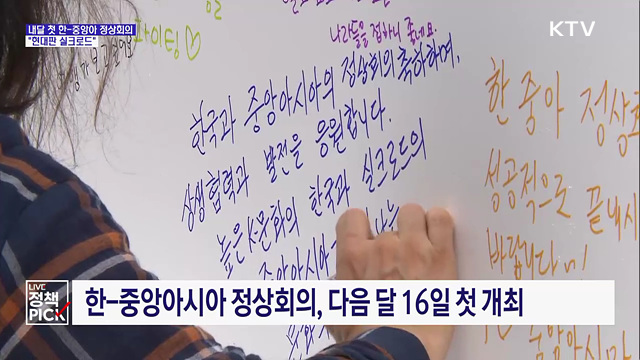 내달 첫 한-중앙아 정상회의
"현대판 실크로드"
KTV
파이팅♡
나라들을 접하니 좋네요.
한국과 중앙아시아의 정상회의 축하하며,
상생협력과 발전을 응원합니다.
높은 K-문화의 한국과 실크로드의
중앙아시아
나는
한 중아 정상회
성공적으로 끝내시
바랍니다!
중앙아시아
LIVE
정책
PICK
한-중앙아시아 정상회의, 다음 달 16일 첫 개최